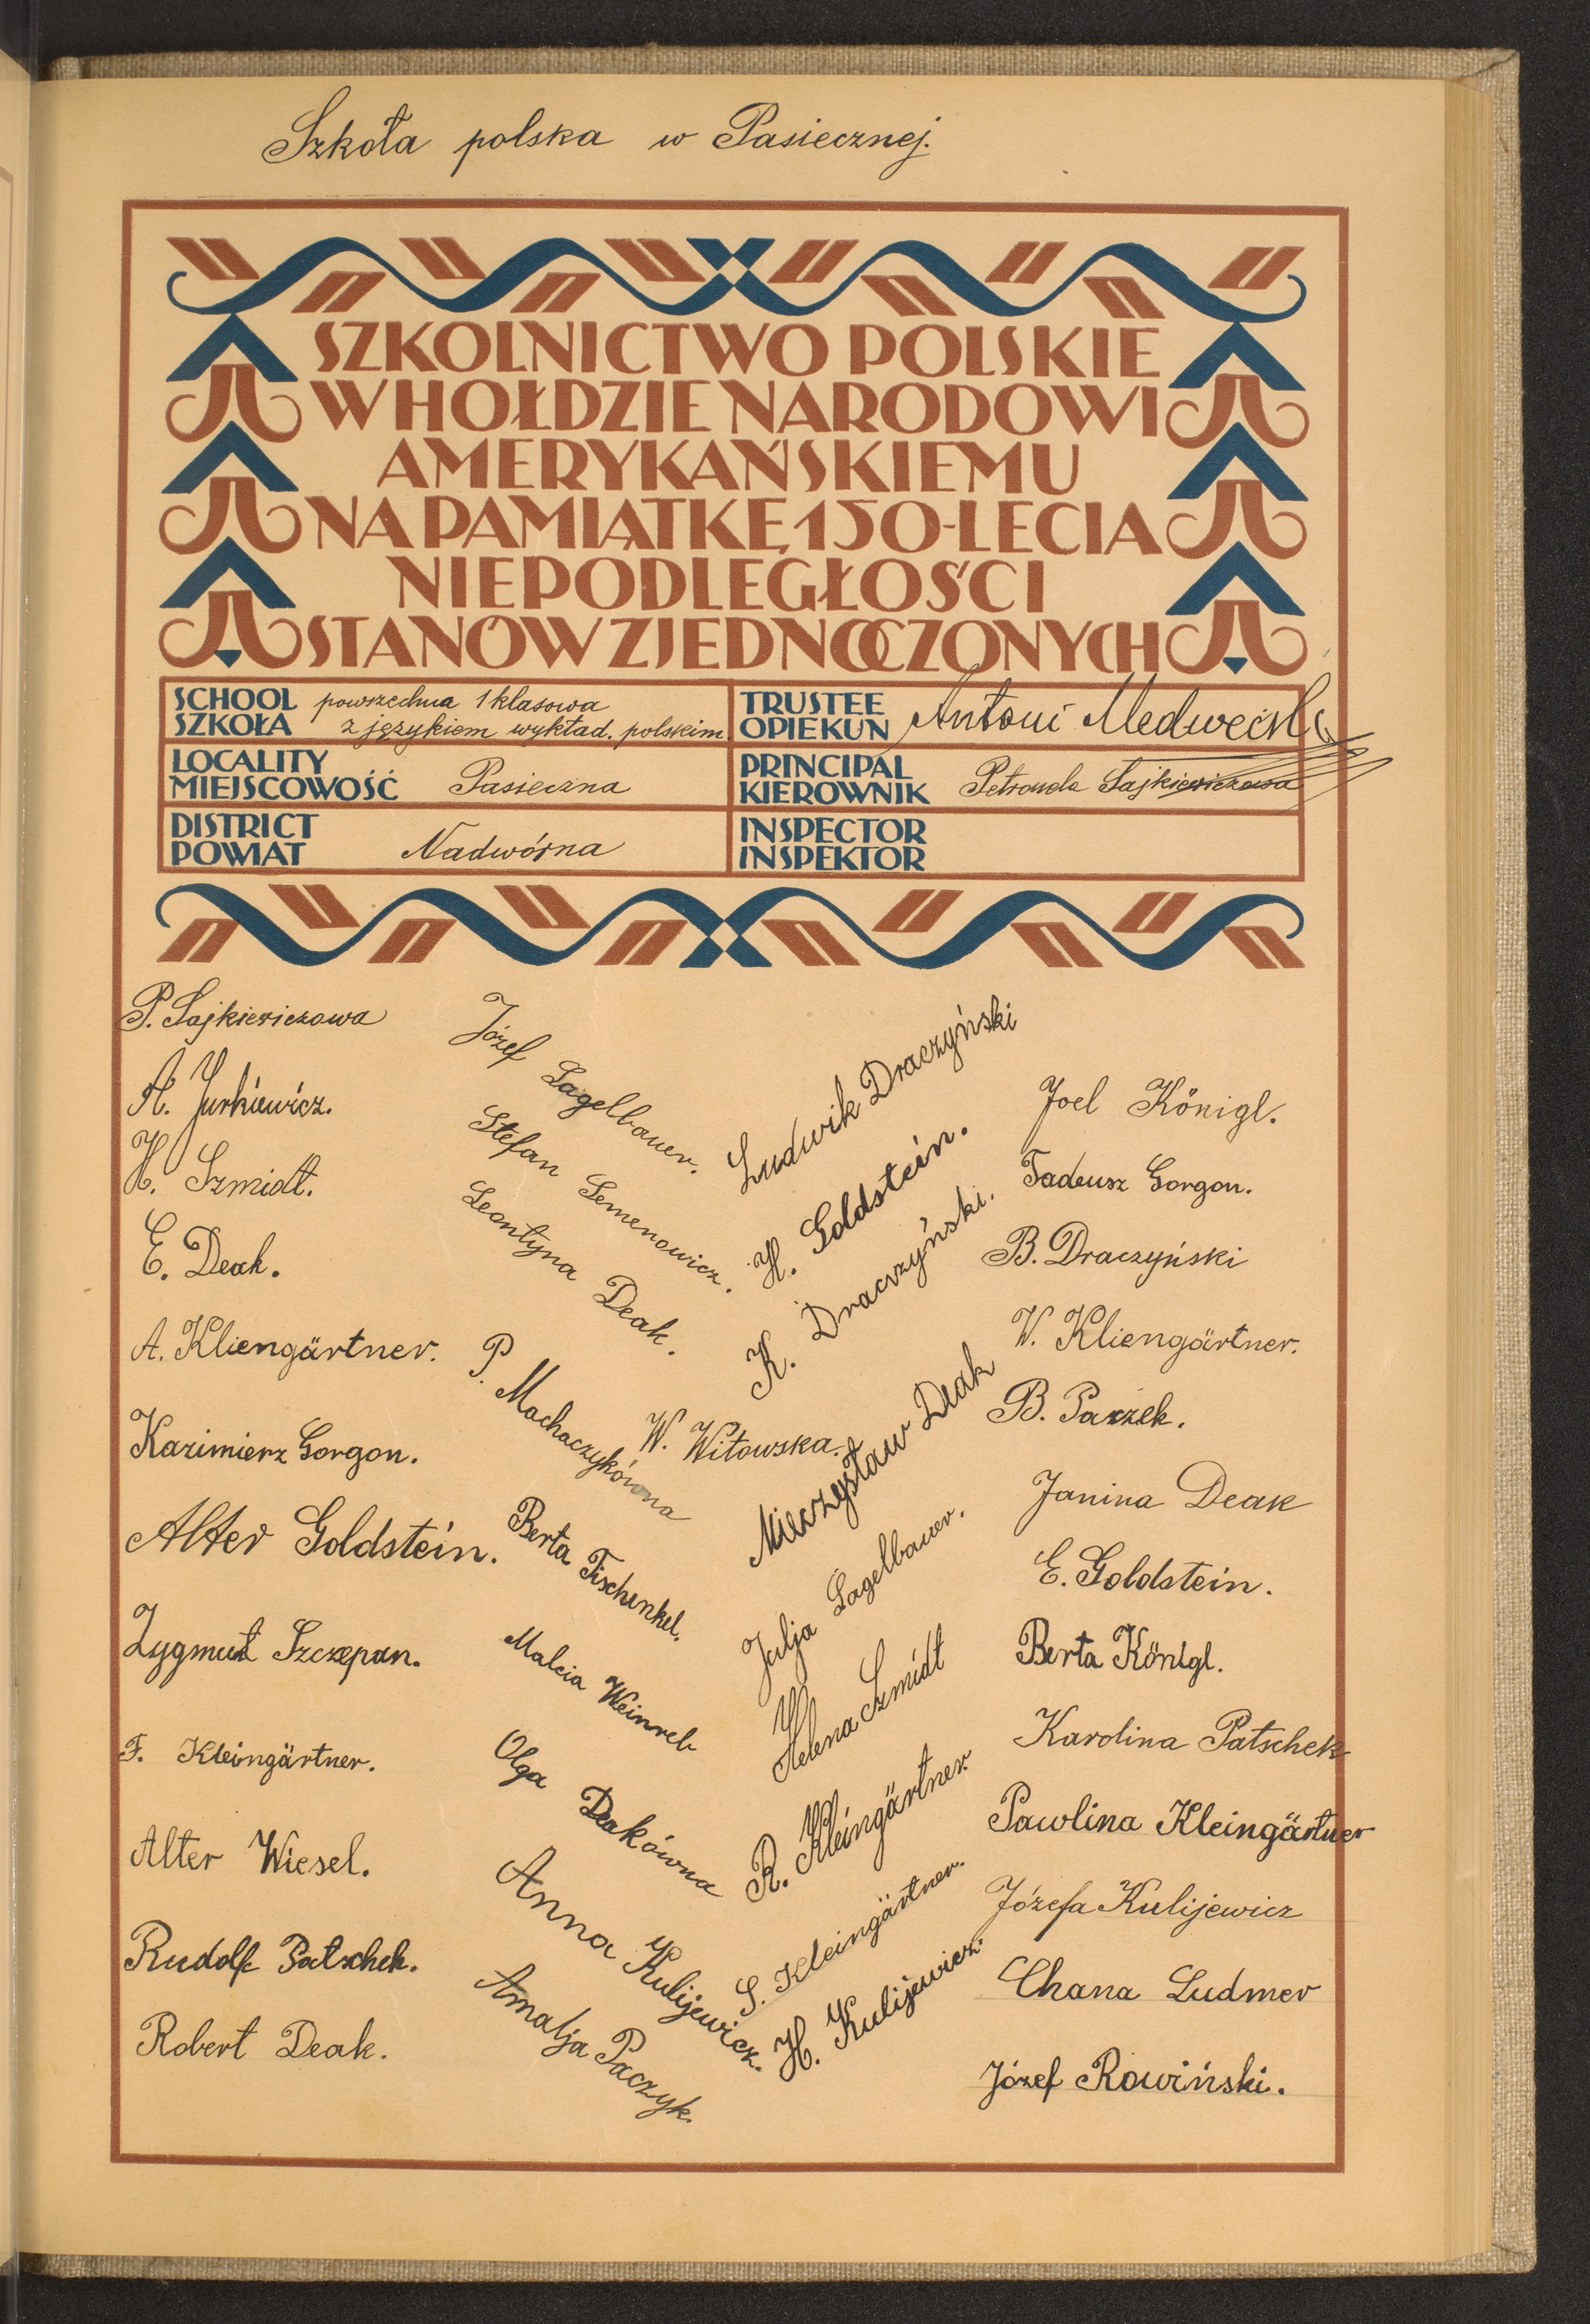 Szkoła polska w Pasiecznej.
SZKOLNICTWO POLSKIE
W HOŁDZIE NARODOWI
AMERYKAŃSKIEMU
NA PAMIĄTKĘ 150-LECIA
NIEPODLEGŁOŚCI
STANÓW ZJEDNOCZONYCH
SCHOOL
SZKOŁA
powszechna 1 klasowa
z językiem wykład. polskim
TRUSTEE
OPIEKUN
Antoni Medwecki
LOCALITY
MIEJSCOWOŚĆ
Pasieczna
PRINCIPAL
KIEROWNIK
Petronela Sajkiewiczowa
DISTRICT
POWIAT
Nadwórna
INSPECTOR
INSPEKTOR
P. Sajkiewiczowa
A. Jurkiewicz.
H. Szmidt.
E. Deak.
A. Kliengärtner.
Kazimierz Gorgon.
Alter Goldstein.
Zygmut Szczepan.
F. Kleingärtner.
Alter Wiesel.
Rudolf Patschek.
Robert Deak.
Józef Lagelbauer.
Stefan Semenowicz.
Leontyna Deak.
P. Machaczykówna
W. Witowska.
Berta Fischenkel.
Malcia Weinreb
Olga Deakówna
Anna Kulijewicz.
Amalja Paczyk.
Ludwik Draczyński
H. Goldstein.
K. Draczyński.
Mieczysław Deak
Julja Lagelbauer.
Helena Szmidt
R. Kleingärtner
S. Kleingärtner.
H. Kulijewicz.
Joel Königl.
Tadeusz Gorgon.
B. Draczyński
W. Kliengärtner.
B. Paczek.
Janina Deak
E. Goldstein.
Berta Königl.
Karolina Patschek
Pawlina Kleingärtner
Józefa Kulijewicz
Chana Ludmer
Józef Rowiński.